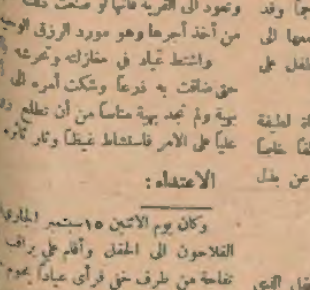 وتعود الى القرية فانها لو صنعت ذلك
من أخذ أجرها وهو مورد الرزق الوحيد
واشتط عباد في مغازلته وتحرشه
حتى ضاقت به ذرعاً وشكت أمره الى
بهية ولم تجد بهية مناصاً من أن تطلع
علياً على الامر فاستشاط غيظاً وثار ثائره
الاعتداء :
وكان يوم الاثنين ١٥ سبتمبر الجاري
الفلاحون الى الحقل وأقام علي يراقب
تفاحة من طرف خفي فرأى عباداً يحوم
وقد
الى
على
لطيفة
عن